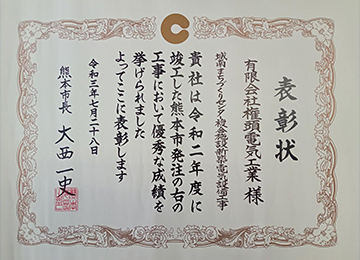 表彰状
有限会社権頭電気工業 様
城南まちづくりセンター複合施設新築電気設備工事
貴社は令和二年度に
竣工した熊本市発注の右の
工事において優秀な成績を
挙げられました
よってここに表彰します
令和三年七月二十八日
熊本市長 大西一史